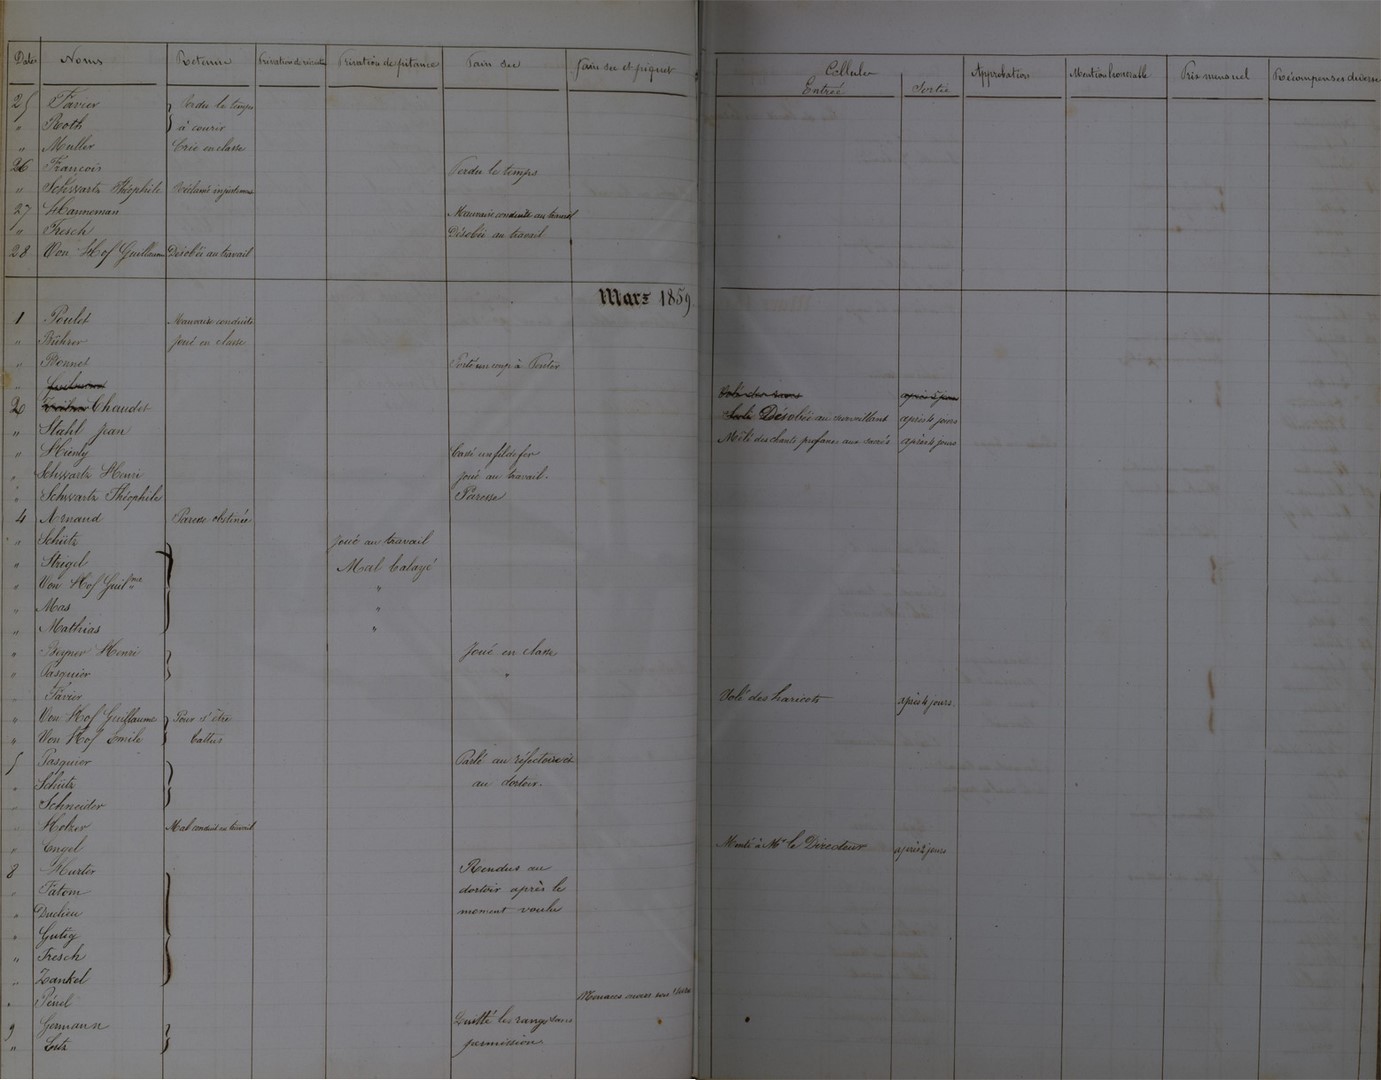 Dates Noms Retenue Privation de récréation Privation de pitance Pain sec Pain sec et piquet Cellule Approbation Mention honorable Prix mensuel Récompenses diverses
Entrée Sortie
25 Favier Perdu le temps
" Roth à courir
" Muller Crié en classe
26 François Perdu le temps
" Schwartz Théophile
27 Hanneman Mauvaise conduite au travail
" Fresch Désobéi au travail
28 Von Hof Guillaume Désobéi au travail
Mars 1859
1 Poulet Mauvaise conduite
" Bührer Joué en classe
" Bonnet Porté un coup à
"
2 Chaudet Désobéi au surveillant après 4 jours
" Stahl Jean Mêlé des chants profanes aux sacrés après 4 jours
" Hienly Cassé un fil de fer
" Schwartz Henri Joué au travail.
" Schwartz Théophile Paresse
4 Arnaud Paresse obstinée
" Schütz Joué au travail
" Strigel Mal balayé
" Von Hof Guilme "
" Mas "
" Mathias "
" Beyner Henri Joué en classe
" Pasquier "
" Favier Volé des haricots après 4 jours.
" Von Hof Guillaume Pour s'être
" Von Hof Emile battus
5 Pasquier Parlé au réfectoire et
" Schütz au dortoir.
" Schneider
" Holzer Mal conduit au travail
" Engel Menti à Mr le Directeur après 2 jours
8 Hurter Rendus au
" Fatom dortoir après le
" Duclieu moment voulu
" Gutig
" Fresch
" Zankel
" Pénel
9 Germann Quitté les rangs sans
" Lutz permission